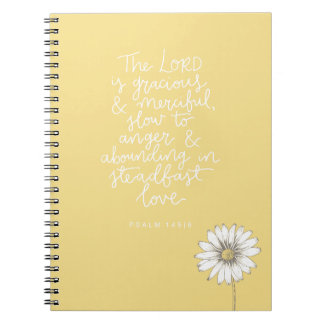 The LORD
is gracious
& merciful,
slow to
anger &
abounding in
steadfast
love
PSALM 145|8